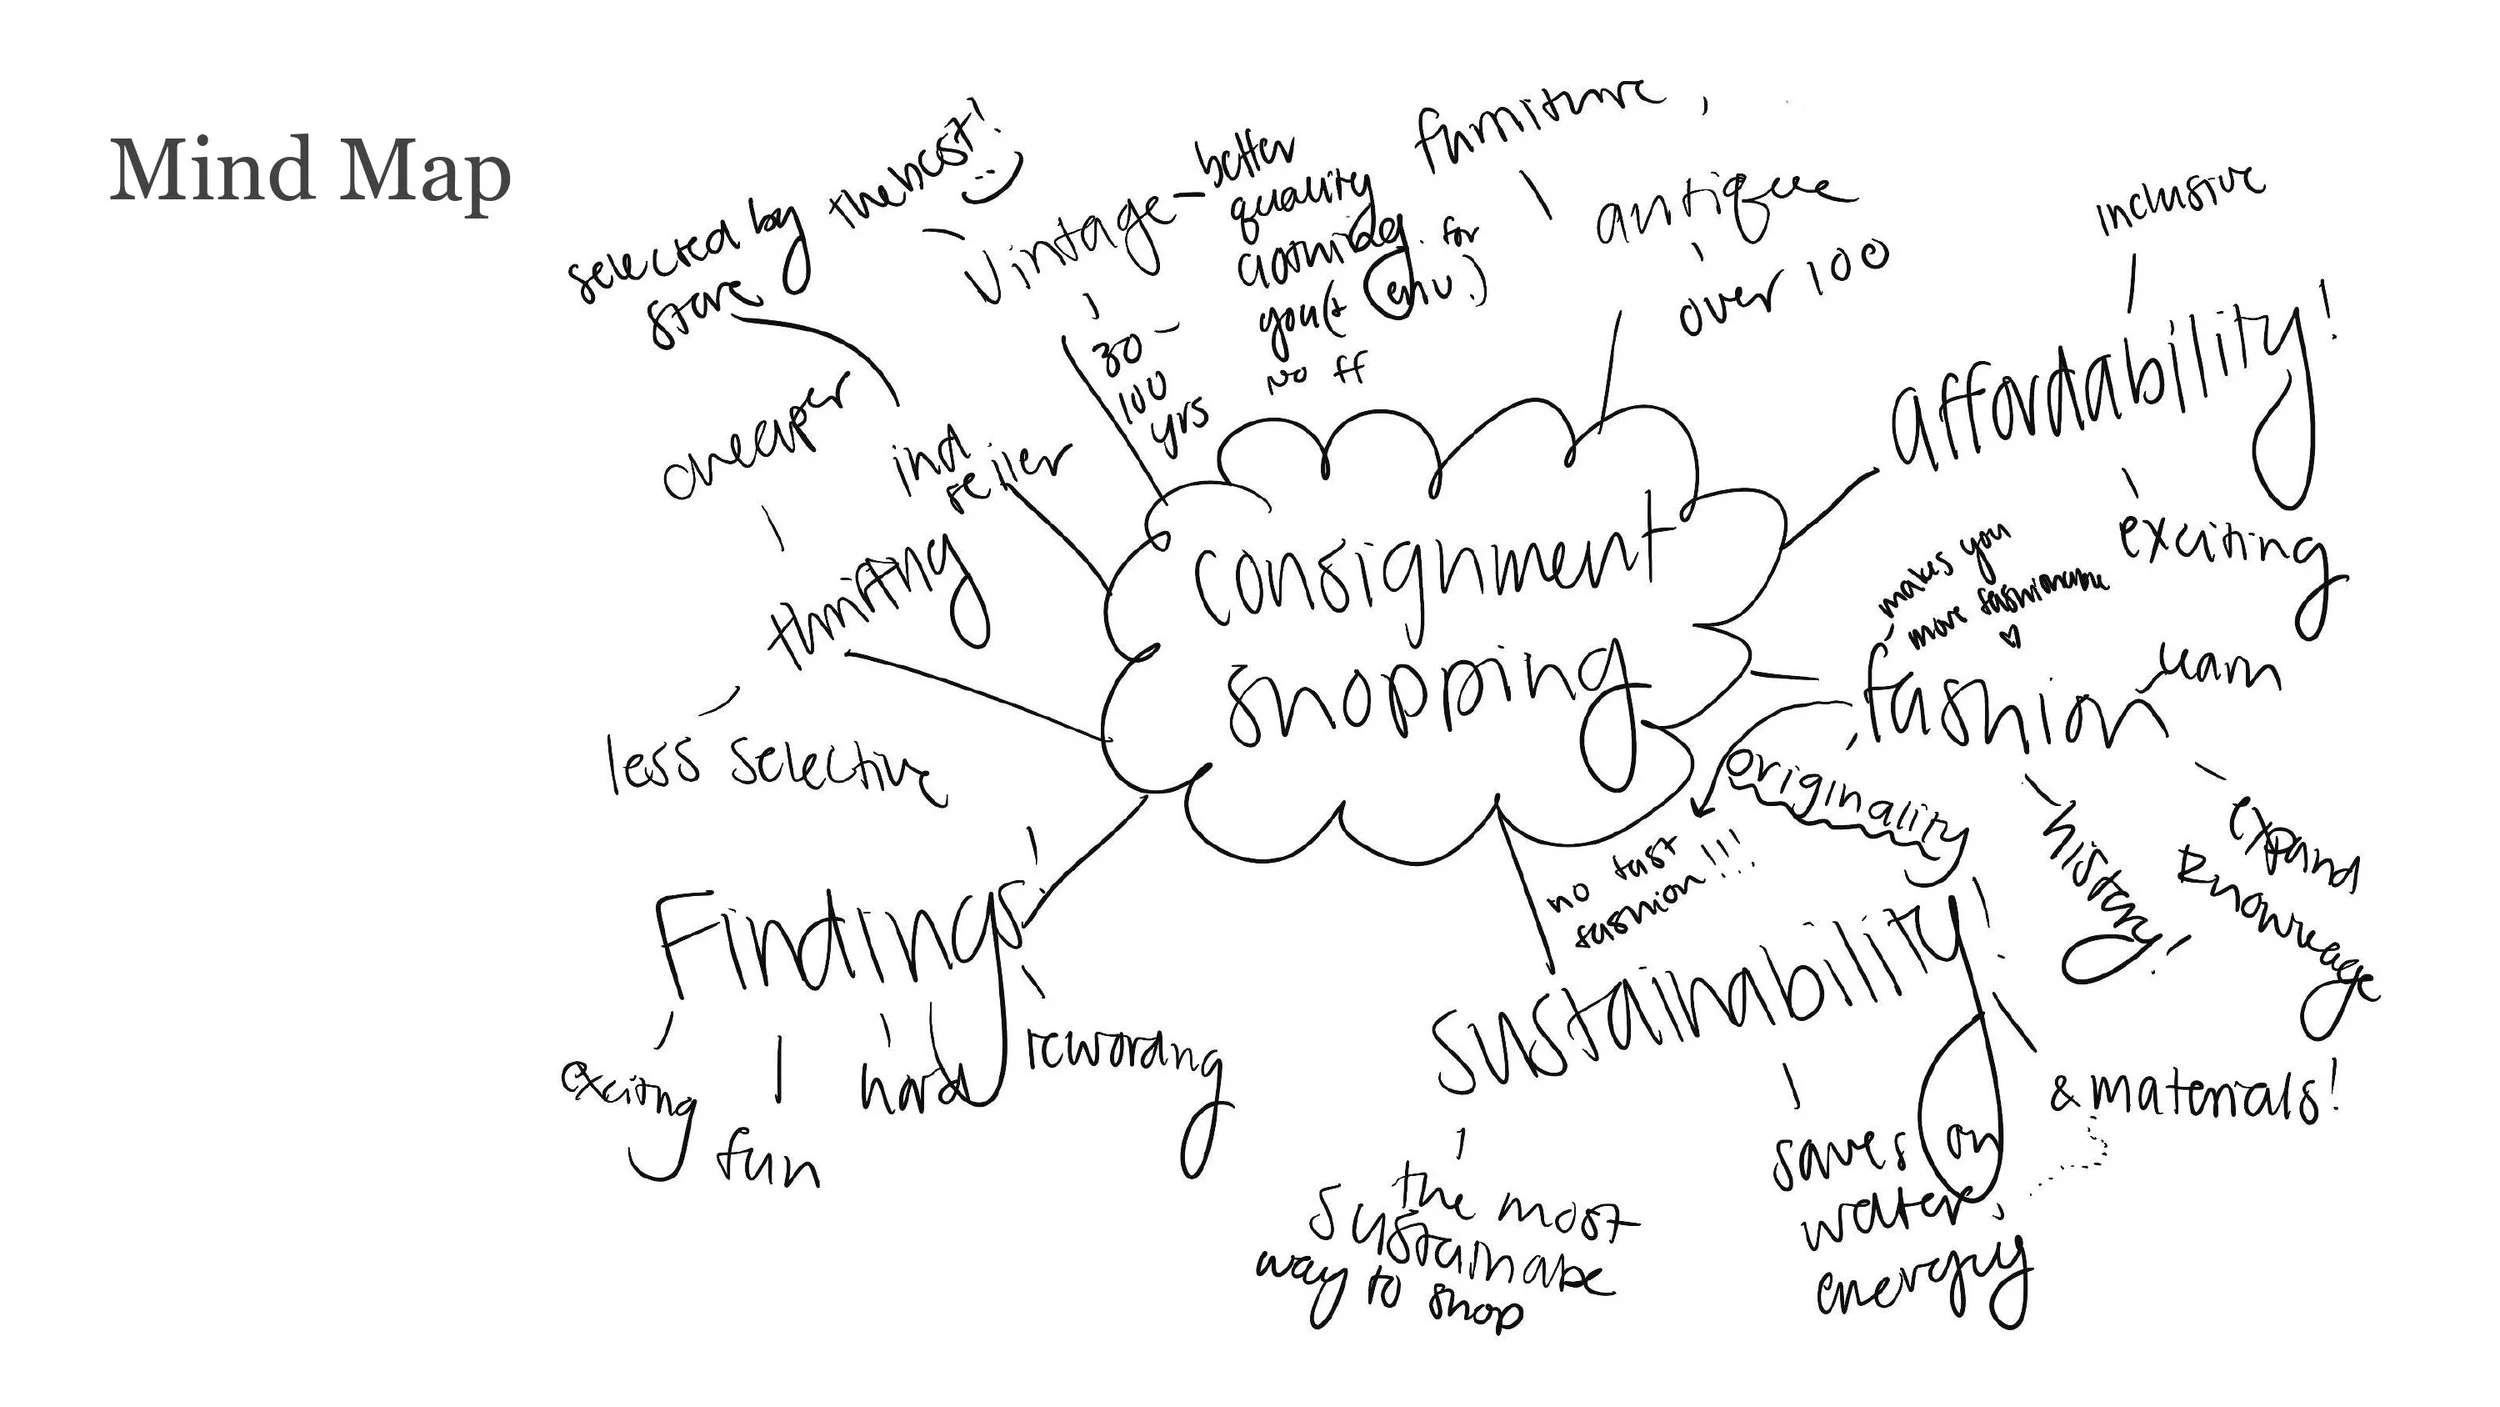 Mind Map
selected by
store
the host!
Vintage -
better
quality
clothing for
you (+ env.)
no ff
30 -
100
yrs
furniture,
antique
over 100
inclusive
affordability!
exciting
cheaper
ind
seller
thrifting
less selective
consignment
shopping
makes you
more fashionable
fashion
learn
originality
history!
expand
knowledge
no fast
fashion!!!
Findings!
exciting
fun
hard
rewarding
sustainability
the most
sustainable
way to shop
saves on
water,
energy
& materials!